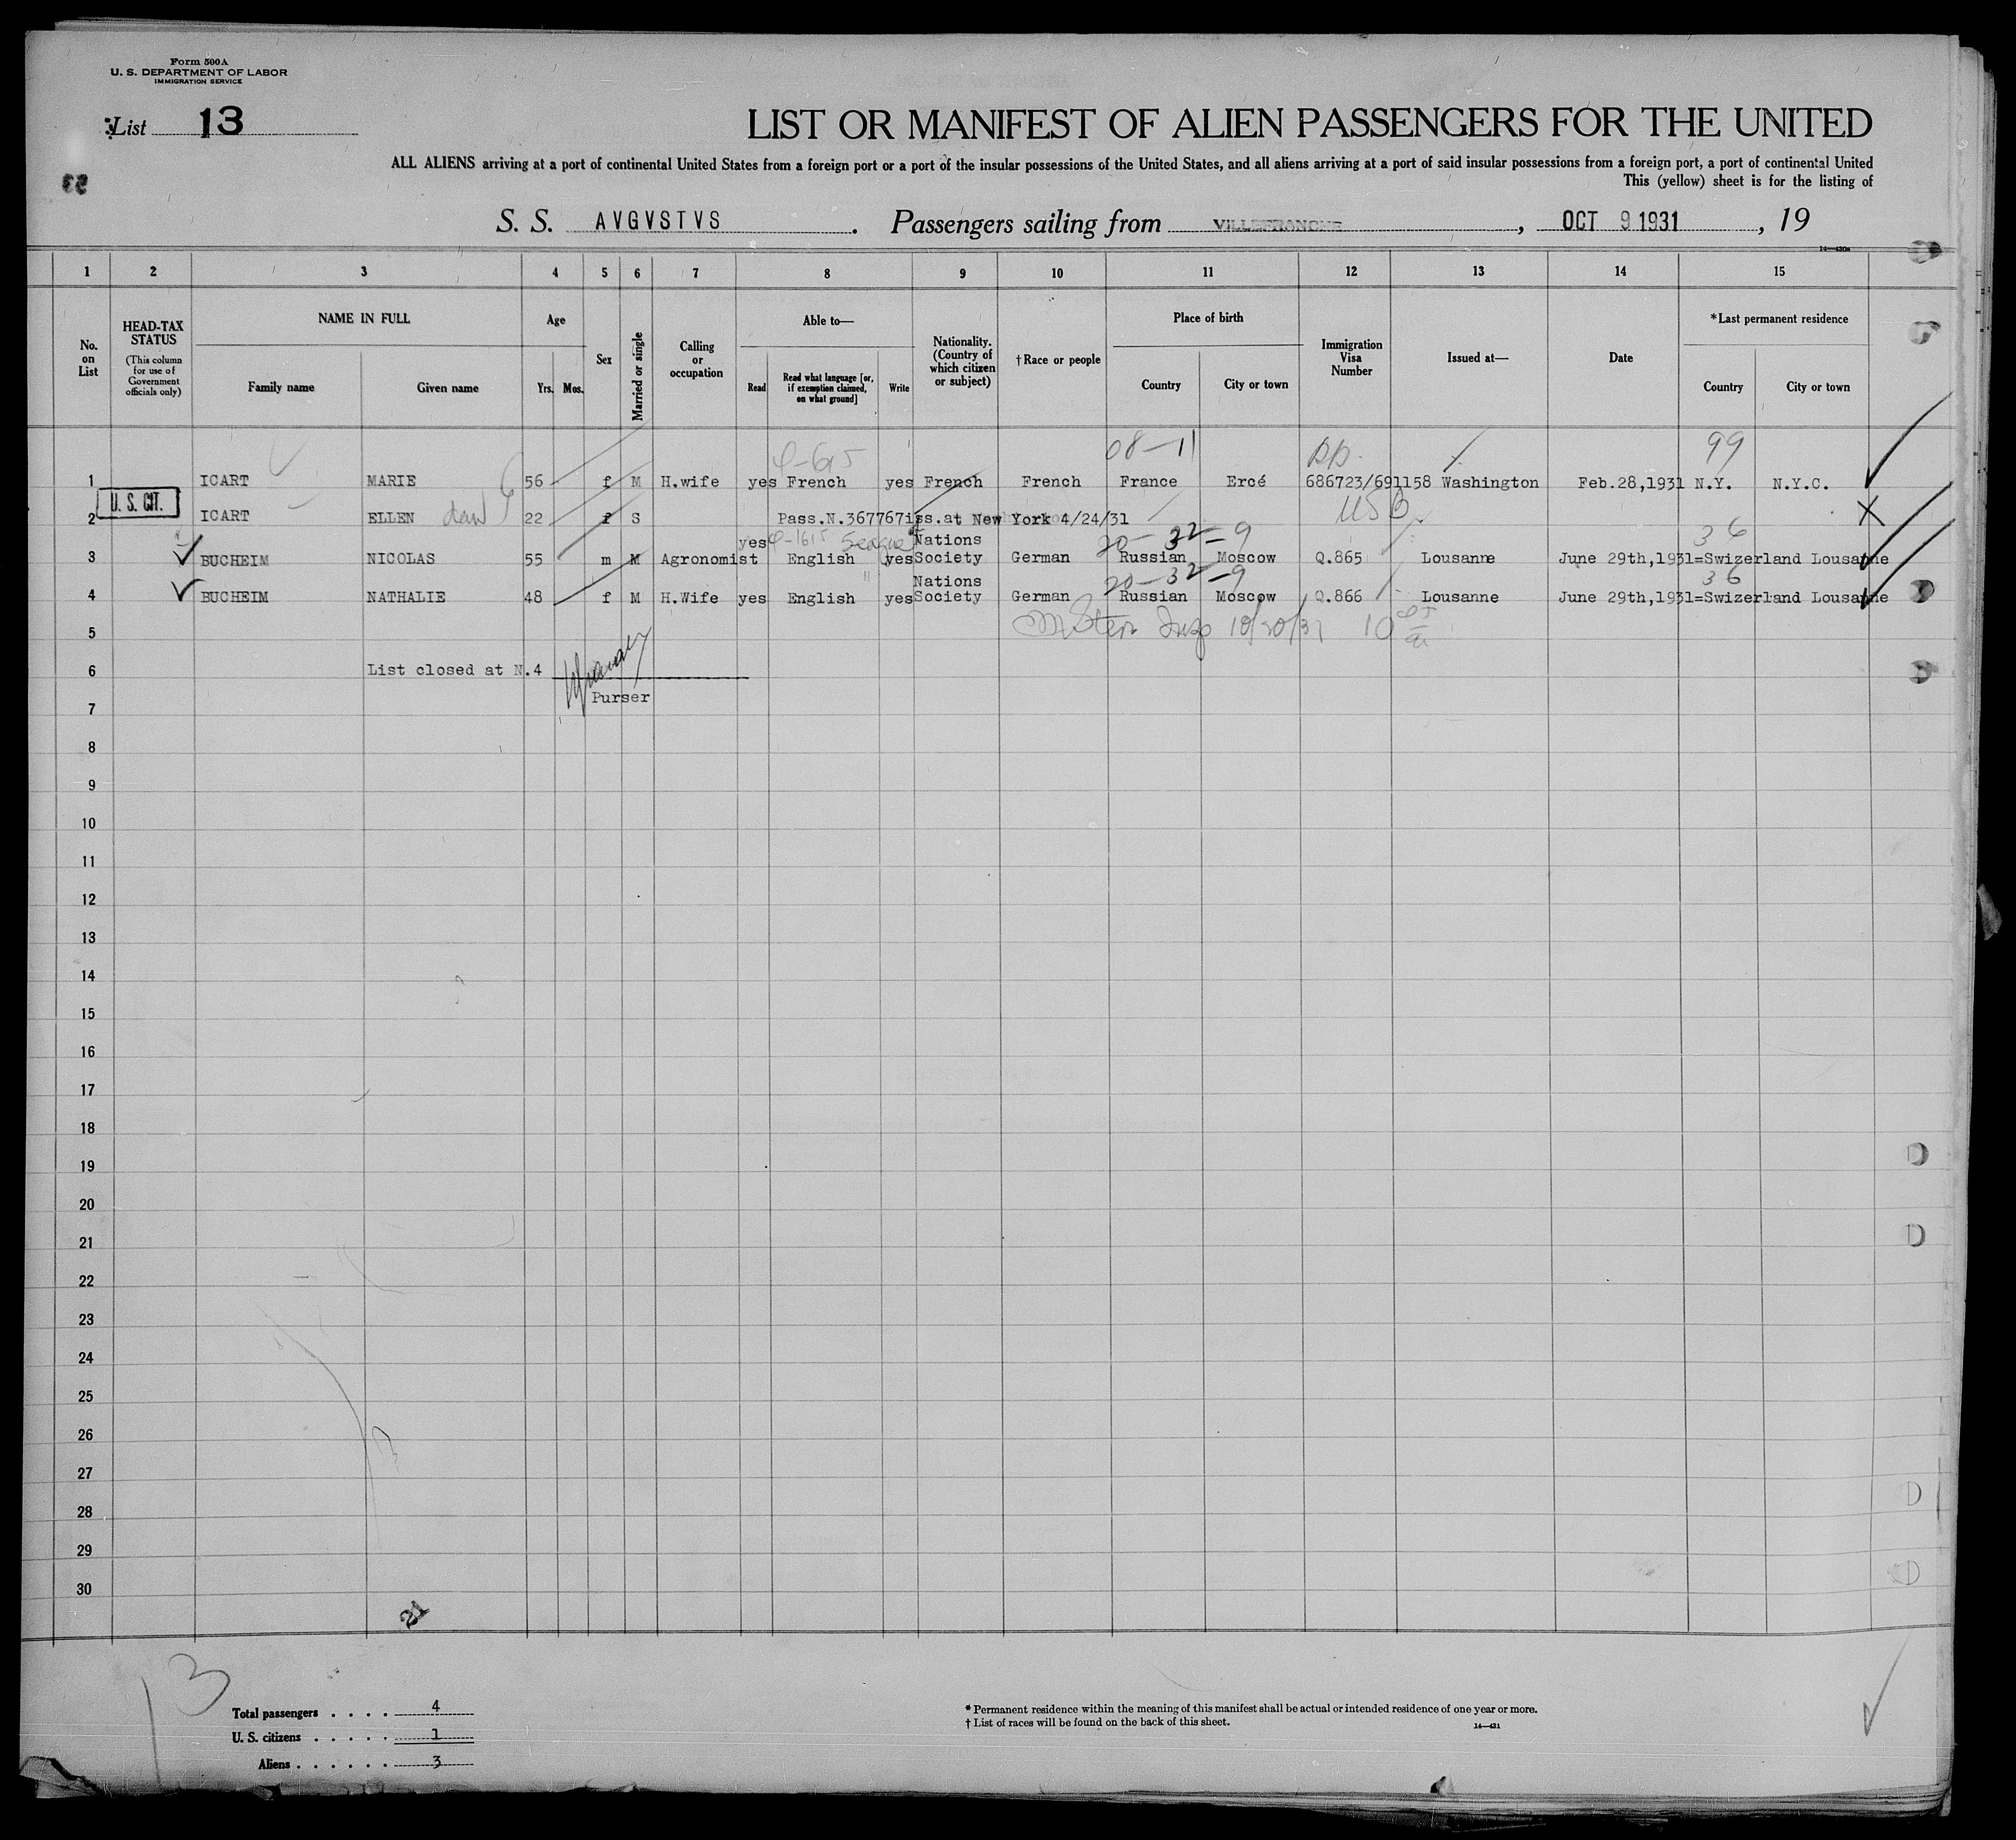 Form 500A
U. S. DEPARTMENT OF LABOR
IMMIGRATION SERVICE
List 13
LIST OR MANIFEST OF ALIEN PASSENGERS FOR THE UNITED
ALL ALIENS arriving at a port of continental United States from a foreign port or a port of the insular possessions of the United States, and all aliens arriving at a port of said insular possessions from a foreign port, a port of continental United
This (yellow) sheet is for the listing of
S. S. AVGVSTVS . Passengers sailing from VILLEFRANCHE , OCT 9 1931 , 19
14—430a
1 2 3 4 5 6 7 8 9 10 11 12 13 14 15
No. on List
HEAD-TAX STATUS
(This column for use of Government officials only)
NAME IN FULL
Family name
Given name
Age
Yrs. Mos.
Sex
Married or single
Calling or occupation
Able to—
Read
Read what language [or, if exemption claimed, on what ground]
Write
Nationality. (Country of which citizen or subject)
†Race or people
Place of birth
Country
City or town
Immigration Visa Number
Issued at—
Date
*Last permanent residence
Country
City or town
08-11 99
1 ICART MARIE 56 f M H.wife yes French yes French French France Ercé 686723/691158 Washington Feb.28,1931 N.Y. N.Y.C.
U. S. CIT.
2 ICART ELLEN 22 f S Pass.N.367767iss.at New York 4/24/31 USB X
20-32-9 36
3 BUCHEIM NICOLAS 55 m M Agronomist yes English yes Nations Society German Russian Moscow Q.865 Lousanne June 29th,1931=Swizerland Lousanne
20-32-9 36
4 BUCHEIM NATHALIE 48 f M H.Wife yes English yes Nations Society German Russian Moscow Q.866 Lousanne June 29th,1931=Swizerland Lousanne
5
6 List closed at N.4
Purser
7
8
9
10
11
12
13
14
15
16
17
18
19
20
21
22
23
24
25
26
27
28
29
30
21
13
Total passengers . . . . 4
U. S. citizens . . . . . 1
Aliens . . . . . . 3
* Permanent residence within the meaning of this manifest shall be actual or intended residence of one year or more.
† List of races will be found on the back of this sheet.
14—431